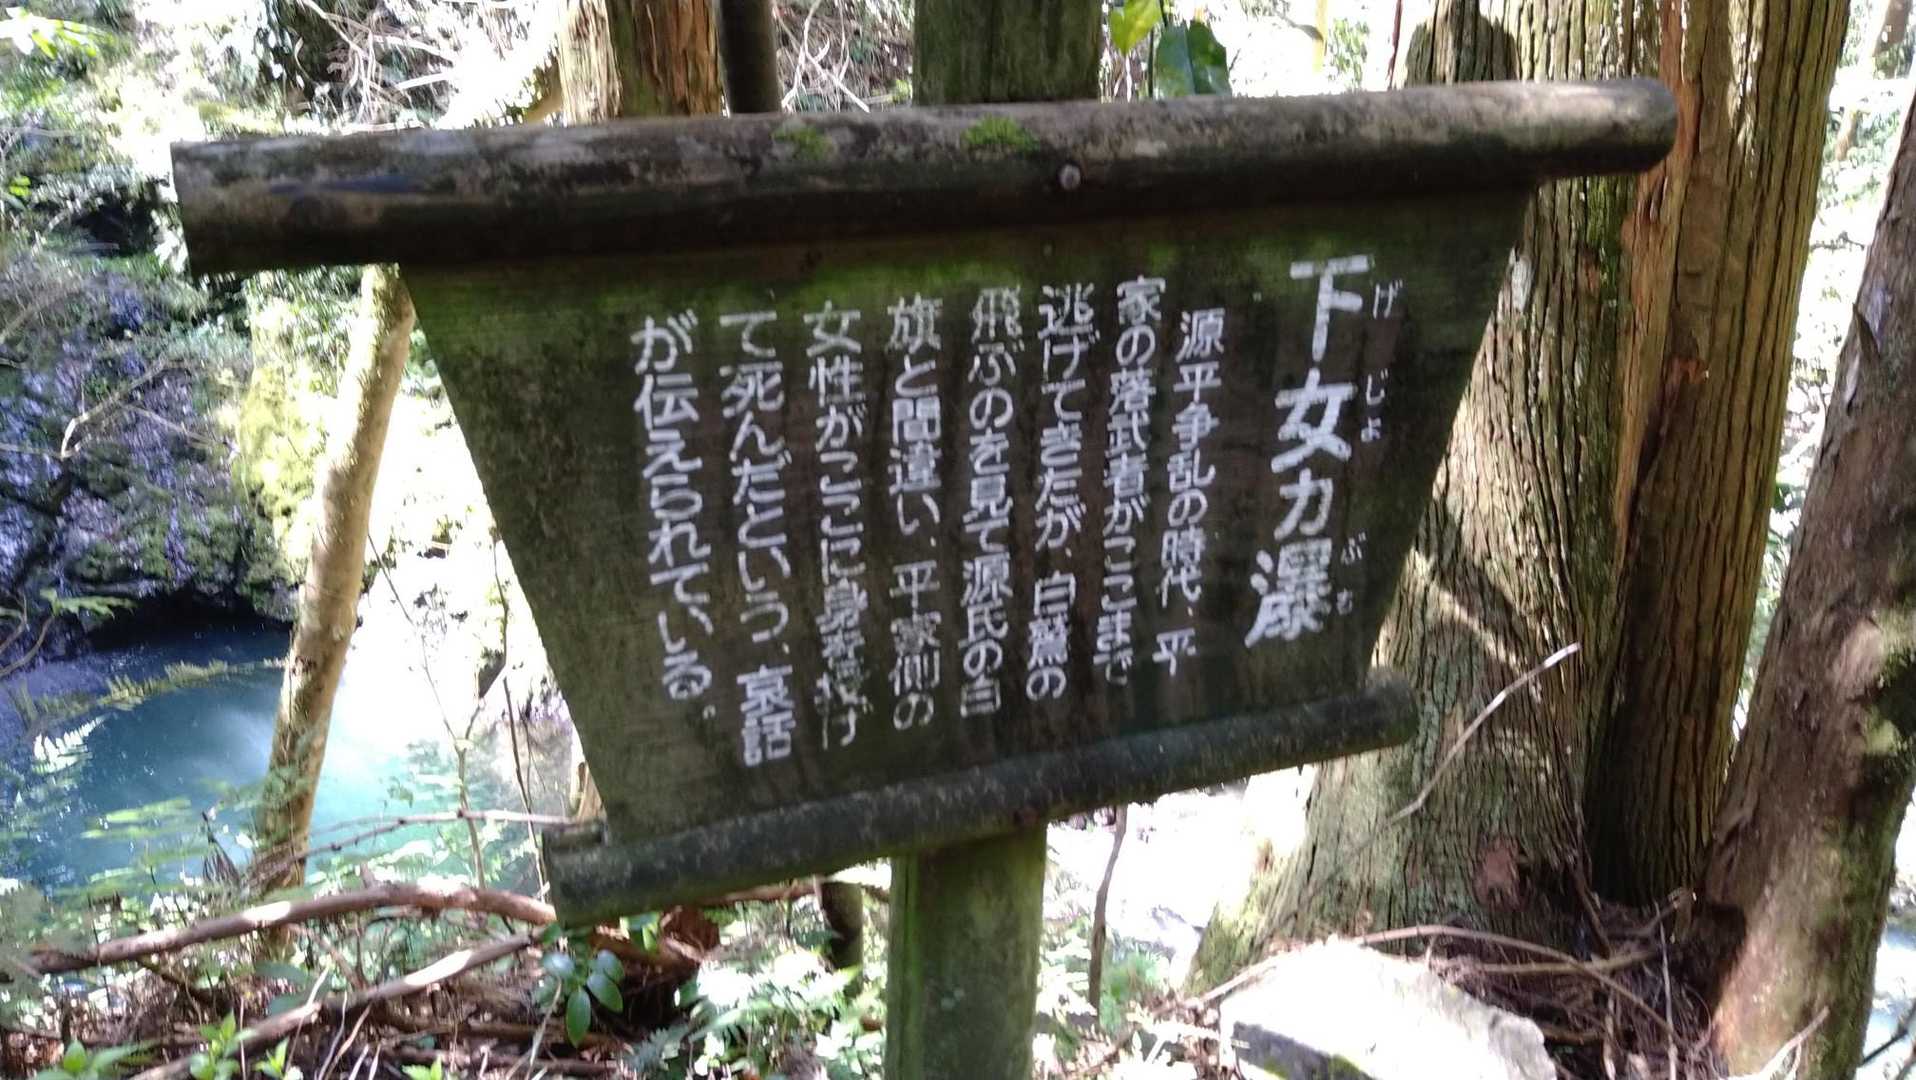 下女カ瀑
げじょ ぶち
源平争乱の時代、平
家の落武者がここまで
逃げてきたが、白鷺の
飛ぶのを見て源氏の白
旗と間違い、平家側の
女性がここに身を投げ
て死んだという、哀話
が伝えられている。